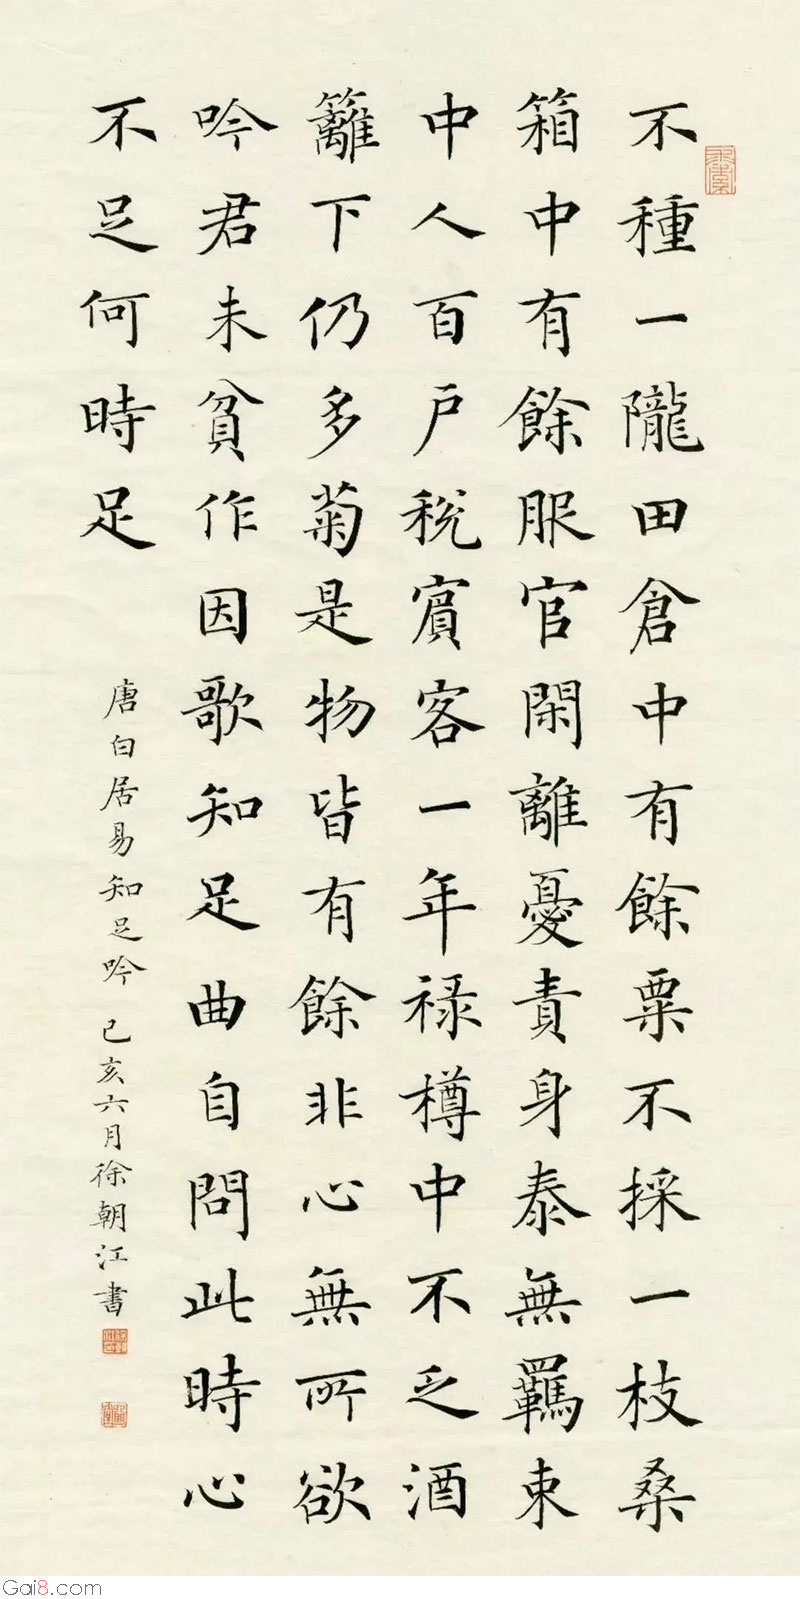 不種一隴田倉中有餘粟不採一枝桑
箱中有餘服官閑離憂責身泰無羈束
中人百戶稅賓客一年禄樽中不乏酒
籬下仍多菊是物皆有餘非心無所欲
吟君未貧作因歌知足曲自問此時心
不足何時足
唐白居易知足吟 己亥六月徐朝江書
Gai8.com